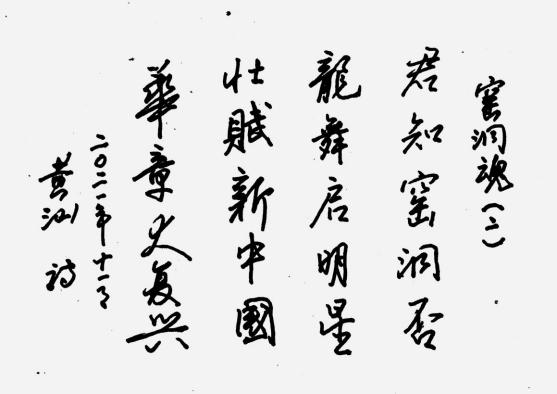 窑洞魂（二）
君知窑洞否
龍舞启明星
壮賦新中國
華章大复兴
二〇二一年十一月
黄渊 詩